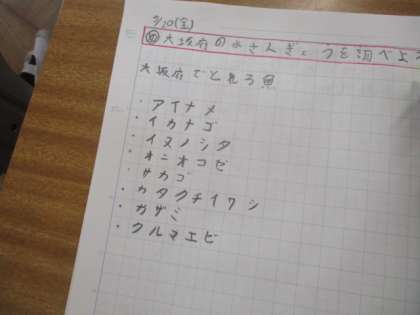 9/20(金)
め 大阪府の水さんぎょうを調べよう
大阪府でとれる魚
・アイナメ
・イカナゴ
・イヌノシタ
・オニオコゼ
・カタクチイワシ
・ガザミ
・クルマエビ